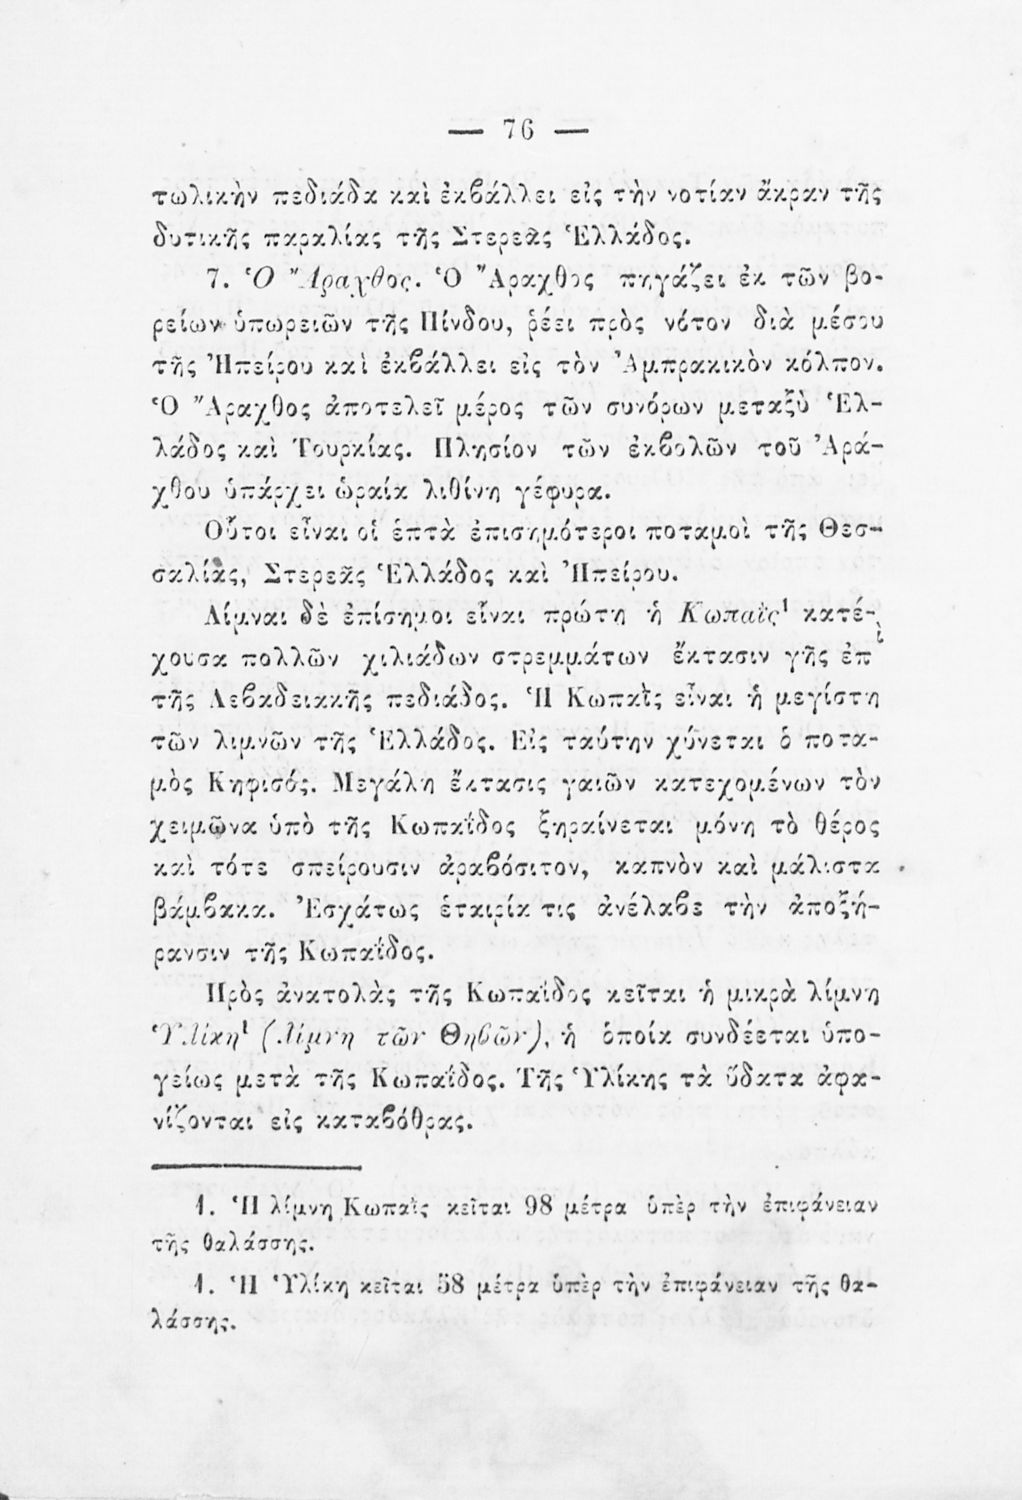 — 76 —
τωλικὴν πεδιάδα καὶ ἐκβάλλει εἰς τὴν νοτίαν ἄκραν τῆς
δυτικῆς παραλίας τῆς Στερεᾶς Ἑλλάδος.
7. Ὁ Ἄραχθος. Ὁ Ἄραχθος πηγάζει ἐκ τῶν βο-
ρείων ὑπωρειῶν τῆς Πίνδου, ῥέει πρὸς νότον διὰ μέσου
τῆς Ἠπείρου καὶ ἐκβάλλει εἰς τὸν Ἀμπρακικὸν κόλπον.
Ὁ Ἄραχθος ἀποτελεῖ μέρος τῶν συνόρων μεταξὺ Ἑλ-
λάδος καὶ Τουρκίας. Πλησίον τῶν ἐκβολῶν τοῦ Ἀρά-
χθου ὑπάρχει ὡραία λιθίνη γέφυρα.
Οὗτοι εἶναι οἱ ἑπτὰ ἐπισημότεροι ποταμοὶ τῆς Θεσ-
σαλίας, Στερεᾶς Ἑλλάδος καὶ Ἠπείρου.
Λίμναι δὲ ἐπίσημοι εἶναι πρώτη ἡ Κωπαΐς¹ κατέ-
χουσα πολλῶν χιλιάδων στρεμμάτων ἔκτασιν γῆς ἐπὶ
τῆς Λεβαδειακῆς πεδιάδος. Ἡ Κωπαῒς εἶναι ἡ μεγίστη
τῶν λιμνῶν τῆς Ἑλλάδος. Εἰς ταύτην χύνεται ὁ ποτα-
μὸς Κηφισός. Μεγάλη ἔκτασις γαιῶν κατεχομένων τὸν
χειμῶνα ὑπὸ τῆς Κωπαΐδος ξηραίνεται μόνη τὸ θέρος
καὶ τότε σπείρουσιν ἀραβόσιτον, καπνὸν καὶ μάλιστα
βάμβακα. Ἐσχάτως ἑταιρία τις ἀνέλαβε τὴν ἀποξή-
ρανσιν τῆς Κωπαΐδος.
Πρὸς ἀνατολὰς τῆς Κωπαΐδος κεῖται ἡ μικρὰ λίμνη
Ὑλίκη¹ (Λίμνη τῶν Θηβῶν), ἡ ὁποία συνδέεται ὑπο-
γείως μετὰ τῆς Κωπαΐδος. Τῆς Ὑλίκης τὰ ὕδατα ἀφα-
νίζονται εἰς καταβόθρας.
1. Ἡ λίμνη Κωπαῒς κεῖται 98 μέτρα ὑπὲρ τὴν ἐπιφάνειαν
τῆς θαλάσσης.
1. Ἡ Ὑλίκη κεῖται 58 μέτρα ὑπὲρ τὴν ἐπιφάνειαν τῆς θα-
λάσσης.